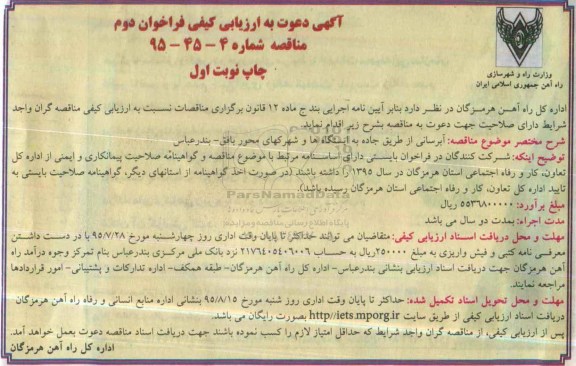 آگهی دعوت به ارزیابی کیفی فراخوان دوم
مناقصه شماره ۴ - ۴۵ - ۹۵
چاپ نوبت اول
وزارت راه و شهرسازی
راه آهن جمهوری اسلامی ایران
اداره کل راه آهن هرمزگان در نظر دارد بنابر آیین نامه اجرایی بند ج ماده ۱۲ قانون برگزاری مناقصات نسبت به ارزیابی کیفی مناقصه گران واجد
شرایط دارای صلاحیت جهت دعوت به مناقصه بشرح زیر اقدام نماید.
شرح مختصر موضوع مناقصه: آبرسانی از طریق جاده به ایستگاه ها و شهرکهای محور بافق- بندرعباس
توضیح اینکه: شرکت کنندگان در فراخوان بایستی دارای اساسنامه مرتبط با موضوع مناقصه و گواهینامه صلاحیت پیمانکاری و ایمنی از اداره کل
تعاون، کار و رفاه اجتماعی استان هرمزگان در سال ۱۳۹۵ را داشته باشند (در صورت اخذ گواهینامه از استانهای دیگر، گواهینامه صلاحیت بایستی به
تایید اداره کل تعاون، کار و رفاه اجتماعی استان هرمزگان رسیده باشد).
مبلغ برآورد: ۵۵۳۶۸۰۰۰۰۰ ریال
مدت اجراء: بمدت دو سال می باشد
مهلت و محل دریافت اسناد ارزیابی کیفی: متقاضیان می توانند حداکثر تا پایان وقت اداری روز چهارشنبه مورخ ۹۵/۷/۲۸ با در دست داشتن
معرفی نامه کتبی و فیش واریزی به مبلغ ۲۵۰۰۰۰ ریال به حساب ۲۱۷۶۴۰۵۴۰۶۰۰۶ نزد بانک ملی مرکزی بندرعباس بنام تمرکز وجوه درآمد راه
آهن هرمزگان جهت دریافت اسناد ارزیابی بنشانی بندرعباس- اداره کل راه آهن هرمزگان- طبقه همکف- اداره تدارکات و پشتیبانی- امور قراردادها
مراجعه نمایند.
مهلت و محل تحویل اسناد تکمیل شده: حداکثر تا پایان وقت اداری روز شنبه مورخ ۹۵/۸/۱۵ بنشانی اداره منابع انسانی و رفاه راه آهن هرمزگان
دریافت اسناد ارزیابی کیفی از طریق سایت http//iets.mporg.ir بصورت رایگان می باشد.
پس از ارزیابی کیفی، از مناقصه گران واجد شرایط که حداقل امتیاز لازم را کسب نموده باشند جهت دریافت اسناد مناقصه دعوت بعمل خواهد آمد.
اداره کل راه آهن هرمزگان
ParsNamadData